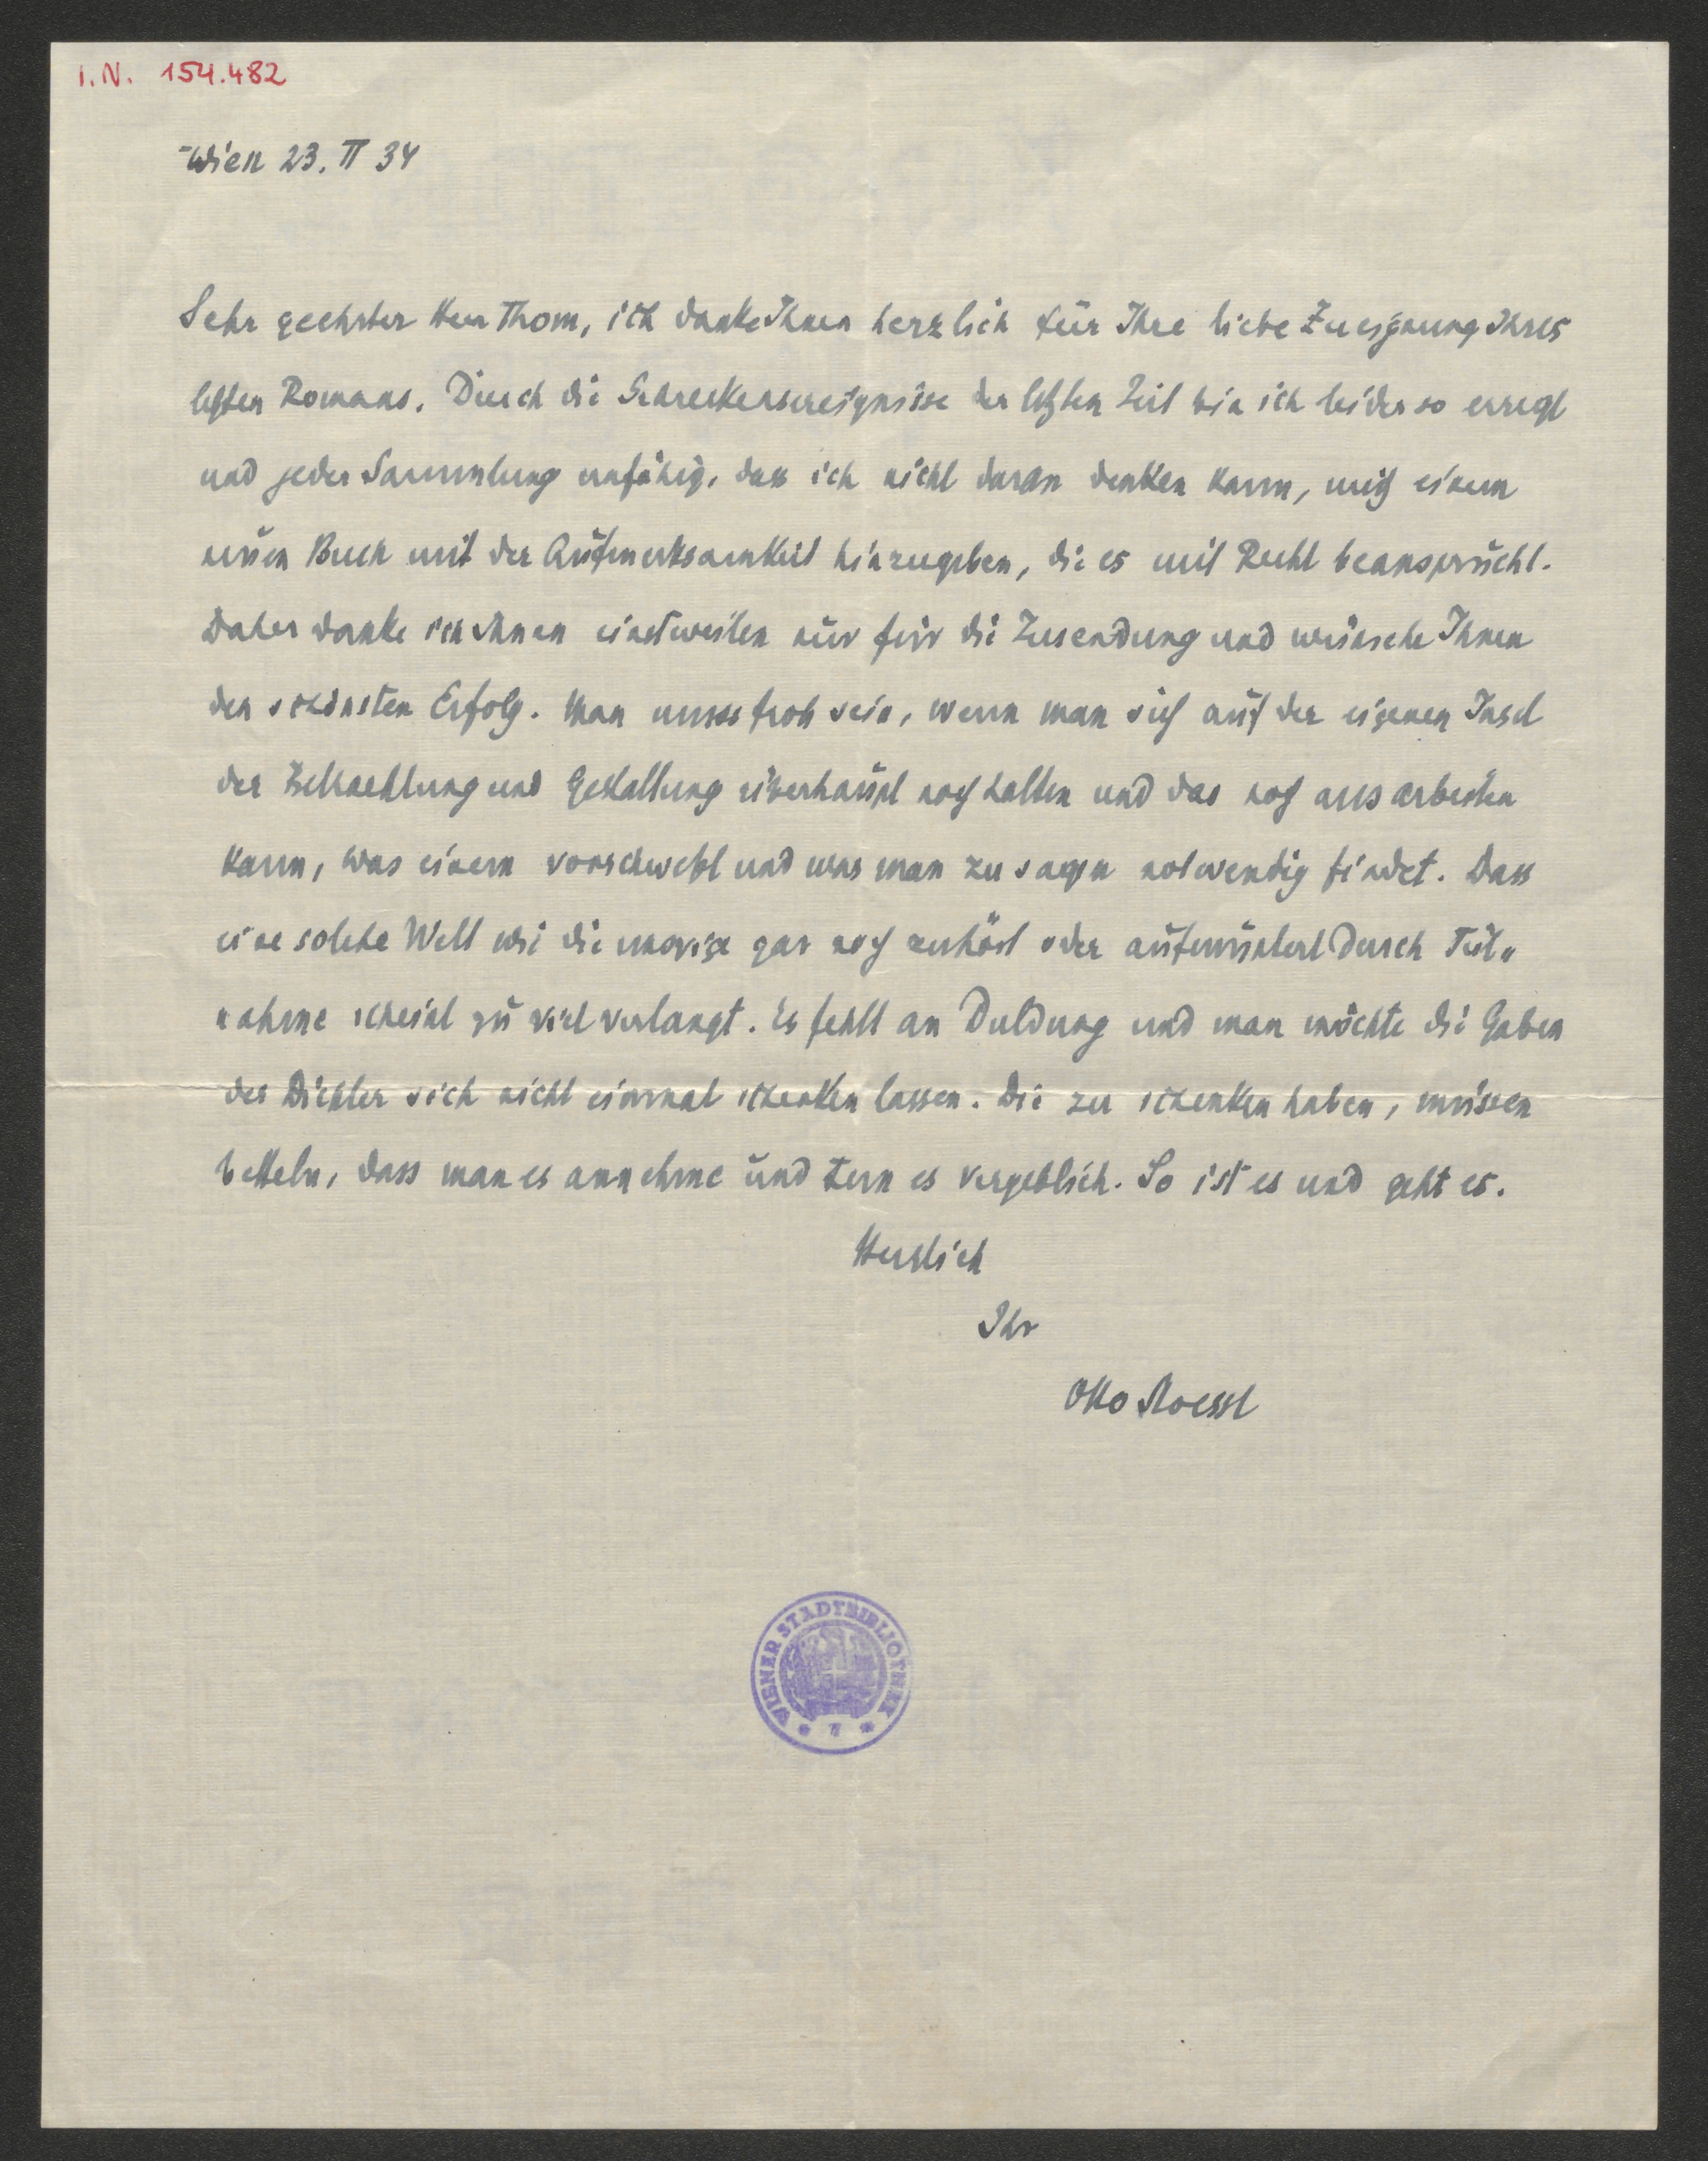 I.N. 154.482
Wien 23. II 34
Sehr geehrter Herr Thom, ich danke Ihnen herzlich für Ihre liebe Zueignung Ihres
letzten Romans. Durch die Schreckensereignisse der letzten Zeit bin ich leider so erregt
und jeder Sammlung unfähig, dass ich nicht daran denken kann, mich einem
neuen Buch mit der Aufmerksamkeit hinzugeben, die es mit Recht beansprucht.
Daher danke ich Ihnen einstweilen nur für die Zusendung und wünsche Ihnen
den schönsten Erfolg. Man muss froh sein, wenn man sich auf der eigenen Insel
der Betrachtung und Gestaltung überhaupt noch halten und das noch ausarbeiten
kann, was einem vorschwebt und was man zu sagen notwendig findet. Dass
eine solche Welt wie die unsrige gar noch zuhört oder aufmuntert durch Teil-
nahme scheint zu viel verlangt. Es fehlt an Duldung und man möchte die Gaben
der Dichter sich nicht einmal schenken lassen. Die zu schenken haben, müssen
betteln, dass man es annehme und tun es vergeblich. So ist es und geht es.
Herzlich
Ihr
Otto Stoessl
WIENER STADTBIBLIOTHEK
* 7 *